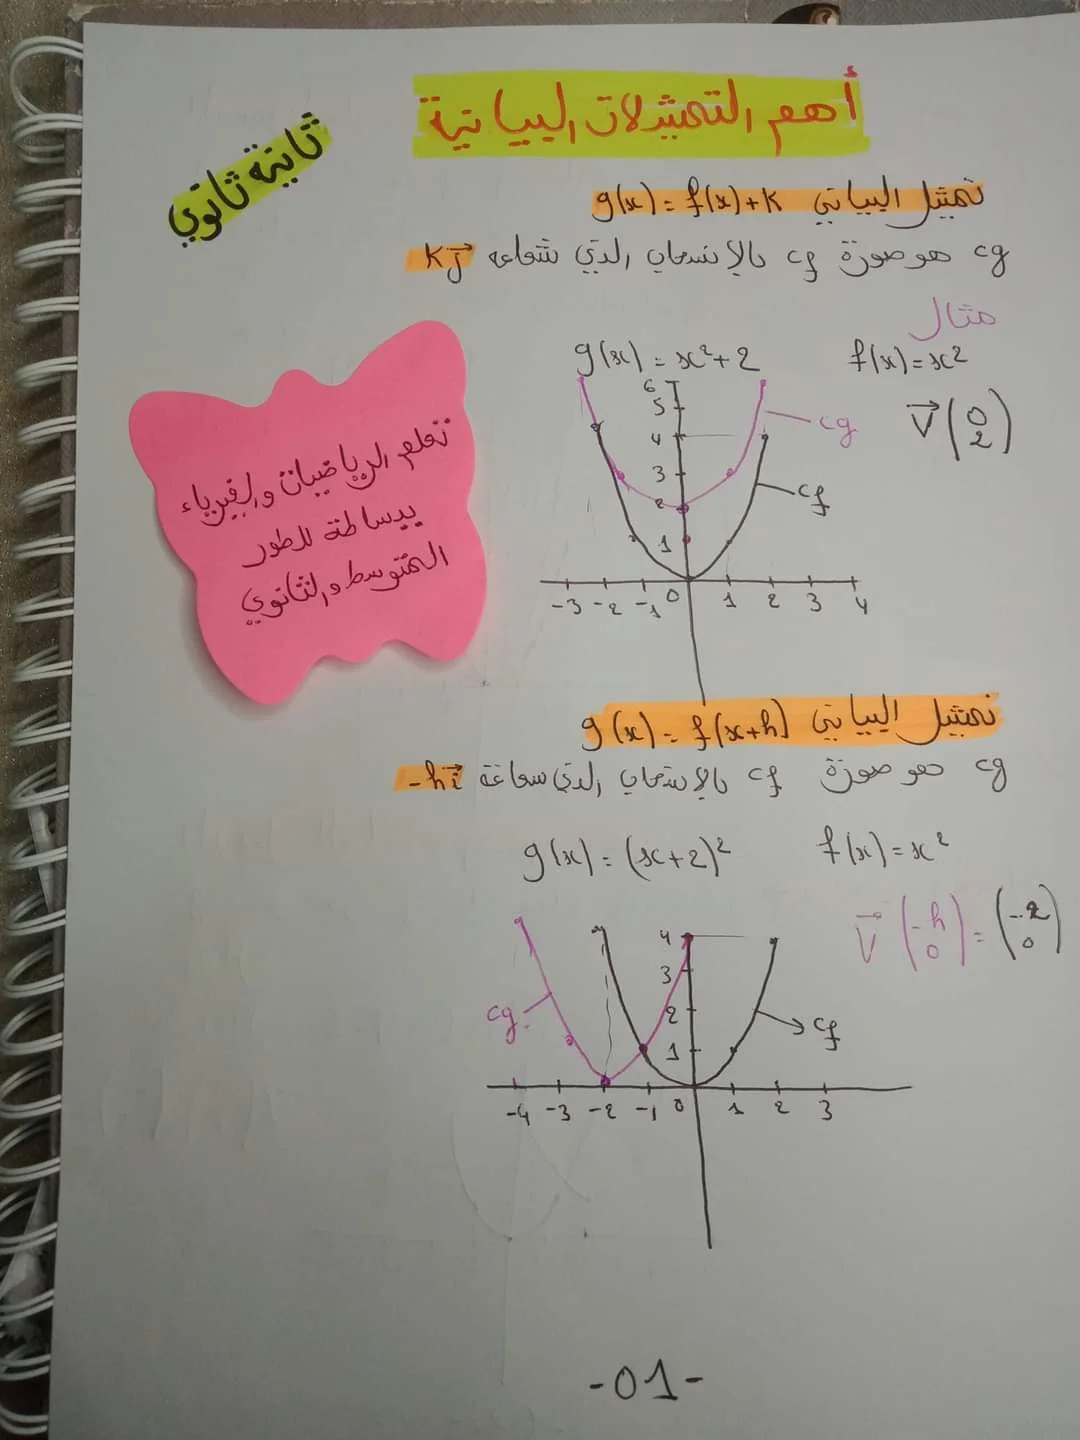 أهم التمثيلات البيانية
ثانية ثانوي
تمثيل البياني g(x) = f(x) + k
cg هو صورة cf بالإنسحاب الذي شعاعه kj⃗
مثال
f(x) = x²
g(x) = x² + 2
V⃗ (0 2)
cg
cf
6
5
4
3
2
1
-3 -2 -1 0 1 2 3 4
نتعلم الرياضيات والفيزياء
ببساطة للطور
المتوسط والثانوي
تمثيل البياني g(x) = f(x+h)
cg هو صورة cf بالإنسحاب الذي شعاعه -hi⃗
f(x) = x²
g(x) = (x+2)²
V⃗ (-h 0) = (-2 0)
cg
cf
4
3
2
1
-4 -3 -2 -1 0 1 2 3
-01-